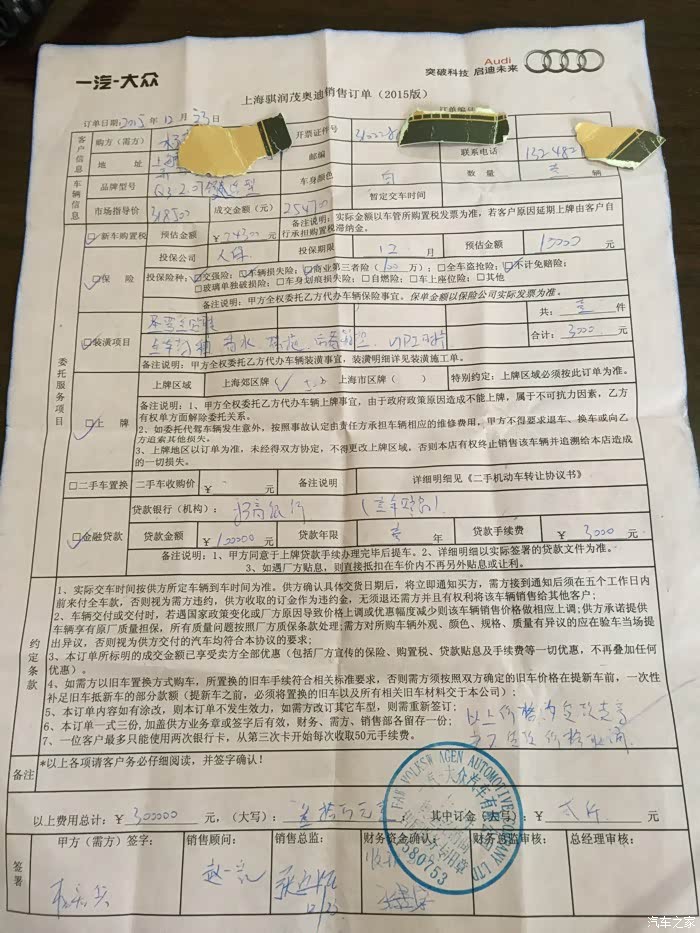 一汽-大众
Audi
突破科技 启迪未来
上海骐润茂奥迪销售订单（2015版）
订单编号
订单日期:2015年12月23日
客户信息
购方（需方）
开票证件号
地 址
邮编
联系电话
车辆信息
品牌型号
Q3 2.0T
车身颜色
白
数 量
壹 辆
市场指导价
318500
成交金额（元）
254700
暂定交车时间
委托服务项目
新车购置税
预估金额
¥ 24300 元
备注说明：实际金额以车管所购置税发票为准，若客户原因延期上牌由客户自行承担购置税滞纳金。
保 险
投保公司
人保
投保期限
12 月
预估金额
10000 元
投保险种：交强险；车辆损失险；商业第三者险（100万）；□全车盗抢险；不计免赔险；
□玻璃单独破损险；□车身划痕损失险；□自燃险；□车上座位险；□其他
备注说明：甲方全权委托乙方代办车辆保险事宜。保单金额以保险公司实际发票为准。
装潢项目
共：壹 件
合计：3000 元
备注说明：甲方全权委托乙方代办车辆装潢事宜，装潢明细详见装潢施工单。
上 牌
上牌区域
上海郊区牌（
上海市区牌（ ）
特别约定：上牌区域必须按此订单为准。
备注说明：1、甲方全权委托乙方代办车辆上牌事宜，由于政府政策原因造成不能上牌，属于不可抗力因素，乙方有权单方面解除委托关系。
2、如委托代驾车辆发生意外，按照事故认定由责任方承担车辆相应的维修费用，甲方不得要求退车、换车或向乙方追索其他损失。
3、上牌地区以订单为准，未经得双方协定，不得更改上牌区域。否则本店有权终止销售该车辆并追溯给本店造成的一切损失。
□二手车置换
二手车收购价
¥ 元
备注说明
详细明细见《二手机动车转让协议书》
金融贷款
贷款银行（机构）：招商银行
贷款金额
¥ 100000 元
贷款年限
壹 年
贷款手续费
¥ 3000 元
备注说明：1、甲方同意于上牌贷款手续办理完毕后提车。2、详细明细以实际签署的贷款文件为准。
3、如遇厂方贴息，则直接抵扣在车价内不再另外贴息或让利。
约定条款
1、实际交车时间按供方所定车辆到车时间为准。供方确认具体交货日期后，将立即通知买方，需方接到通知后须在五个工作日内前来付全车款，否则视为需方违约，供方收取的订金作为违约金，无须退还需方并且有权利将该车辆销售给其他客户；
2、车辆交付或交付时，若遇国家政策变化或厂方原因导致价格上调或优惠幅度减少则该车辆销售价做相应上调；供方承诺提供车辆享有原厂质量担保，所有质量问题按照厂方质保条款处理；需方对所购车辆外观、颜色、规格、质量有异议的应在验车当场提出异议，否则视为供方交付的汽车均符合本协议的要求；
3、本订单所标明的成交金额已享受卖方全部优惠（包括厂方宣传的保险、购置税、贷款贴息及手续费等一切优惠，不再叠加任何优惠）。
4、如需方以旧车置换方式购车，所置换的旧车手续符合相关标准要求，否则需方须按照双方确定的旧车价格在提新车前，一次性补足旧车抵新车的部分款额（提新车之前，必须将置换的旧车以及所有相关旧车材料交于本公司）；
5、本订单内容如有涂改，则本订单不发生效力，如需方改订其它车型，则需重新签订；
6、本订单一式三份，加盖供方业务章或签字后有效，财务、需方、销售部各留存一份；
7、一位客户最多只能使用两次银行卡，从第三次卡开始每次收取50元手续费。
备注
*以上各项请客户务必仔细阅读，并签字确认！
以上费用总计：¥ 300000 元，（大写）：叁拾万元 其中订金（大写）：¥ 贰仟 元
FAW VOLKSWAGEN AUTOMOTIVE COMPANY LTD
一汽-大众汽车有限公司
580753
签署
甲方（需方）签字：
销售顾问：
销售总监：
12/23
财务资金确认：
财务总监审核：
总经理审核：
汽车之家